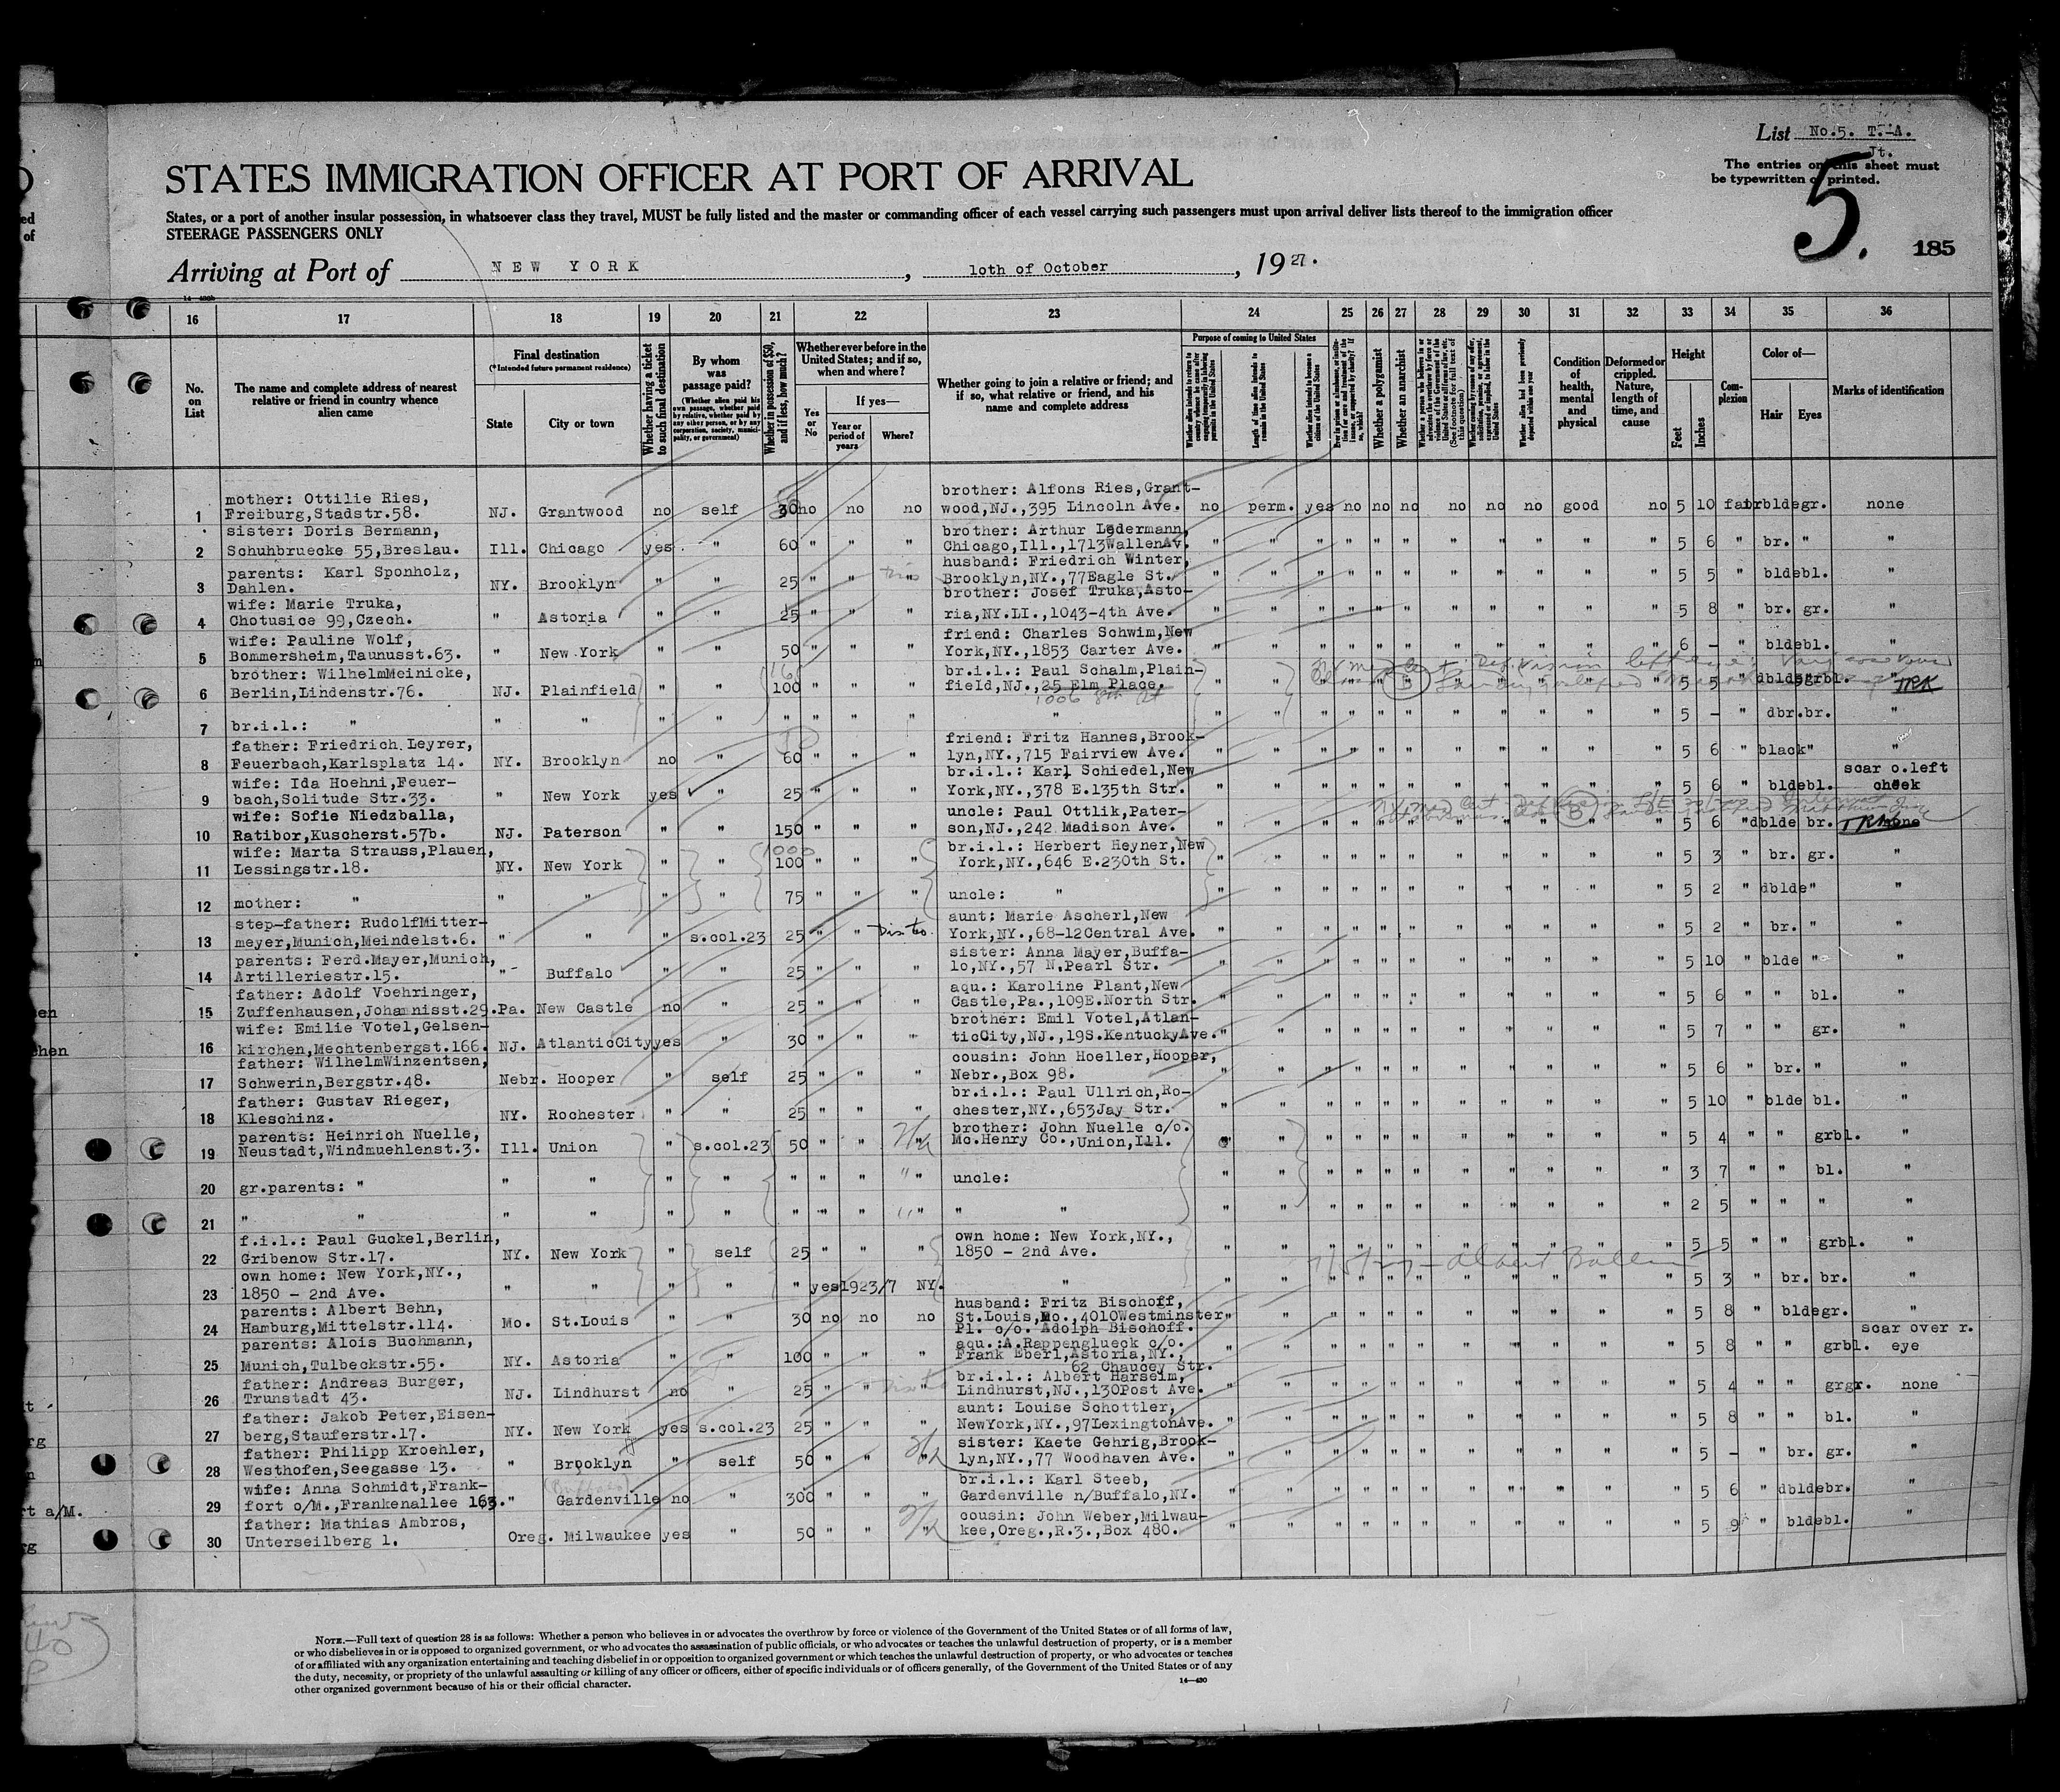 List No.5. T.-A.
Jt.
The entries on this sheet must
be typewritten or printed.
5.
185
STATES IMMIGRATION OFFICER AT PORT OF ARRIVAL
States, or a port of another insular possession, in whatsoever class they travel, MUST be fully listed and the master or commanding officer of each vessel carrying such passengers must upon arrival deliver lists thereof to the immigration officer
STEERAGE PASSENGERS ONLY
Arriving at Port of NEW YORK, 10th of October, 1927.
16 17 18 19 20 21 22 23 24 25 26 27 28 29 30 31 32 33 34 35 36
No. on List
The name and complete address of nearest relative or friend in country whence alien came
Final destination
(*Intended future permanent residence)
State
City or town
Whether having a ticket to such final destination
By whom was passage paid?
(Whether alien paid his own passage, whether paid by relative, whether paid by any other person, or by any corporation, society, municipality, or government)
Whether in possession of $50, and if less, how much?
Whether ever before in the United States; and if so, when and where?
Yes or No
If yes—
Year or period of years
Where?
Whether going to join a relative or friend; and if so, what relative or friend, and his name and complete address
Purpose of coming to United States
Length of time alien intends to remain in the United States
Whether alien intends to become a citizen of the United States
Whether a polygamist
Whether an anarchist
Condition of health, mental and physical
Deformed or crippled. Nature, length of time, and cause
Height
Feet
Inches
Complexion
Color of—
Hair
Eyes
Marks of identification
mother: Ottilie Ries, brother: Alfons Ries,Grant-
1 Freiburg,Stadstr.58. NJ. Grantwood no self 30 no no no wood,NJ.,395 Lincoln Ave. no perm. yes no no no no no no good no 5 10 fair bldegr. none
sister: Doris Bermann, brother: Arthur Ledermann,
2 Schuhbruecke 55,Breslau. Ill. Chicago yes " 60 " " " Chicago,Ill.,1713WallenAv. " " " " " " " " " " " 5 6 " br. " "
parents: Karl Sponholz, husband: Friedrich Winter,
3 Dahlen. NY. Brooklyn " " 25 " " " Brooklyn,NY.,77Eagle St. " " " " " " " " " " " 5 5 " bldebl. "
wife: Marie Truka, brother: Josef Truka,Asto-
4 Chotusice 99,Czech. " Astoria " " 25 " " " ria,NY.LI.,1043-4th Ave. " " " " " " " " " " " 5 8 " br. gr. "
wife: Pauline Wolf, friend: Charles Schwim,New
5 Bommersheim,Taunusst.63. " New York " " 50 " " " York,NY.,1853 Carter Ave. " " " " " " " " " " " 6 - " bldebl. "
brother: WilhelmMeinicke, 160 br.i.l.: Paul Schalm,Plain-
6 Berlin,Lindenstr.76. NJ. Plainfield " " 100 " " " field,NJ.,25 Elm Place. " " " " " " " " " " " 5 5 " dbldegrbl. " TRK
1006 8th St
7 br.i.l.: " " " " " " " " " " " " " " " " " " " " " " 5 - " dbr.br. "
father: Friedrich Leyrer, friend: Fritz Hannes,Brook-
8 Feuerbach,Karlsplatz 14. NY. Brooklyn no " 60 " " " lyn,NY.,715 Fairview Ave. " " " " " " " " " " " 5 6 " black" "
wife: Ida Hoehni,Feuer- br.i.l.: Karl Schiedel,New scar o.left
9 bach,Solitude Str.33. " New York yes " 25 " " " York,NY.,378 E.135th Str. " " " " " " " " " " " 5 6 " bldebl. cheek
wife: Sofie Niedzballa, uncle: Paul Ottlik,Pater-
10 Ratibor,Kuscherst.57b. NJ. Paterson " " 150 " " " son,NJ.,242 Madison Ave. " " " " " " " " " " " 5 6 " dblde br. none TRK
wife: Marta Strauss,Plauen, 1000 br.i.l.: Herbert Heyner,New
11 Lessingstr.18. NY. New York " " 100 " " " York,NY.,646 E.230th St. " " " " " " " " " " " 5 3 " br. gr. "
12 mother: " " " " " 75 " " " uncle: " " " " " " " " " " " " 5 2 " dblde" "
step-father: RudolfMitter- aunt: Marie Ascherl,New
13 meyer,Munich,Meindelst.6. " " " s.col.23 25 " " York,NY.,68-12Central Ave. " " " " " " " " " " " 5 2 " br. " "
parents: Ferd.Mayer,Munich, sister: Anna Mayer,Buffa-
14 Artilleriestr.15. " Buffalo " " 25 " " " lo,NY.,57 N.Pearl Str. " " " " " " " " " " " 5 10 " blde " "
father: Adolf Voehringer, aqu.: Karoline Plant,New
15 Zuffenhausen,Johannisst.29. Pa. New Castle no " 25 " " " Castle,Pa.,109E.North Str. " " " " " " " " " " " 5 6 " " bl. "
wife: Emilie Votel,Gelsen- brother: Emil Votel,Atlan-
16 kirchen,Mechtenbergst.166. NJ. AtlanticCity yes " 30 " " " ticCity,NJ.,19S.KentuckyAve. " " " " " " " " " " " 5 7 " " gr. "
father: WilhelmWinzentsen, cousin: John Hoeller,Hooper,
17 Schwerin,Bergstr.48. Nebr. Hooper " self 25 " " " Nebr.,Box 98. " " " " " " " " " " " 5 6 " br. " "
father: Gustav Rieger, br.i.l.: Paul Ullrich,Ro-
18 Kleschinz. NY. Rochester " " 25 " " " chester,NY.,653Jay Str. " " " " " " " " " " " 5 10 " blde bl. "
parents: Heinrich Nuelle, brother: John Nuelle c/o.
19 Neustadt,Windmuehlenst.3. Ill. Union " s.col.23 50 " " " Mc.Henry Co.,Union,Ill. " " " " " " " " " " " 5 4 " " grbl. "
20 gr.parents: " " " " " " " " " uncle: " " " " " " " " " " " 3 7 " " bl. "
21 " " " " " " " " " " " " " " " " " " " " " " " 2 5 " " " "
f.i.l.: Paul Guckel,Berlin, own home: New York,NY.,
22 Gribenow Str.17. NY. New York " self 25 " " " 1850 - 2nd Ave. " " " " " " " " " " " 5 5 " " grbl. "
Albert Ballin
own home: New York,NY.,
23 1850 - 2nd Ave. " " " " " yes 1923/7 NY. " " " " " " " " " " " " 5 3 " br. br. "
parents: Albert Behn, husband: Fritz Bischoff,
24 Hamburg,Mittelstr.114. Mo. St.Louis " " 30 no no no St.Louis,Mo.,4010Westminster " " " " " " " " " " " 5 8 " bldegr. "
Pl. c/o. Adolph Bischoff.
parents: Alois Buchmann, aqu.:A.Rappenglueck c/o. scar over r.
25 Munich,Tulbeckstr.55. NY. Astoria " " 100 " " " Frank Eberl,Astoria,NY., " " " " " " " " " " " 5 8 " " grbl. eye
62 Chaucey Str.
father: Andreas Burger, br.i.l.: Albert Harseim,
26 Trunstadt 43. NJ. Lindhurst no " 25 " " " Lindhurst,NJ.,130Post Ave. " " " " " " " " " " " 5 4 " " grgr. none
father: Jakob Peter,Eisen- aunt: Louise Schottler,
27 berg,Stauferstr.17. NY. New York yes s.col.23 25 " " " NewYork,NY.,97LexingtonAve. " " " " " " " " " " " 5 8 " " bl. "
father: Philipp Kroehler, sister: Kaete Gehrig,Brook-
28 Westhofen,Seegasse 13. " Brooklyn " self 50 " " " lyn,NY.,77 Woodhaven Ave. " " " " " " " " " " " 5 - " br. gr. "
wife: Anna Schmidt,Frank- (Buffalo) br.i.l.: Karl Steeb,
29 fort o/M.,Frankenallee 163. " Gardenville no " 300 " " " Gardenville n/Buffalo,NY. " " " " " " " " " " " 5 6 " dbldebr. "
father: Mathias Ambros, cousin: John Weber,Milwau-
30 Unterseilberg 1. Oreg. Milwaukee yes " 50 " " " kee,Oreg.,R.3.,Box 480. " " " " " " " " " " " 5 9 " bldebl. "
NOTE.—Full text of question 28 is as follows: Whether a person who believes in or advocates the overthrow by force or violence of the Government of the United States or of all forms of law,
or who disbelieves in or is opposed to organized government, or who advocates the assassination of public officials, or who advocates or teaches the unlawful destruction of property, or is a member
of or affiliated with any organization entertaining and teaching disbelief in or opposition to organized government or which teaches the unlawful destruction of property, or who advocates or teaches
the duty, necessity, or propriety of the unlawful assaulting or killing of any officer or officers, either of specific individuals or of officers generally, of the Government of the United States or of any
other organized government because of his or their official character.
14—430